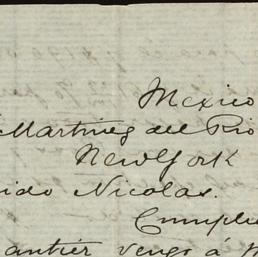 Mexico
Martinez del Rio
New York
ido Nicolas.
Cumplie
antier vengo á